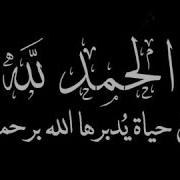 الحمد لله
حياة يُدبرها الله برحم